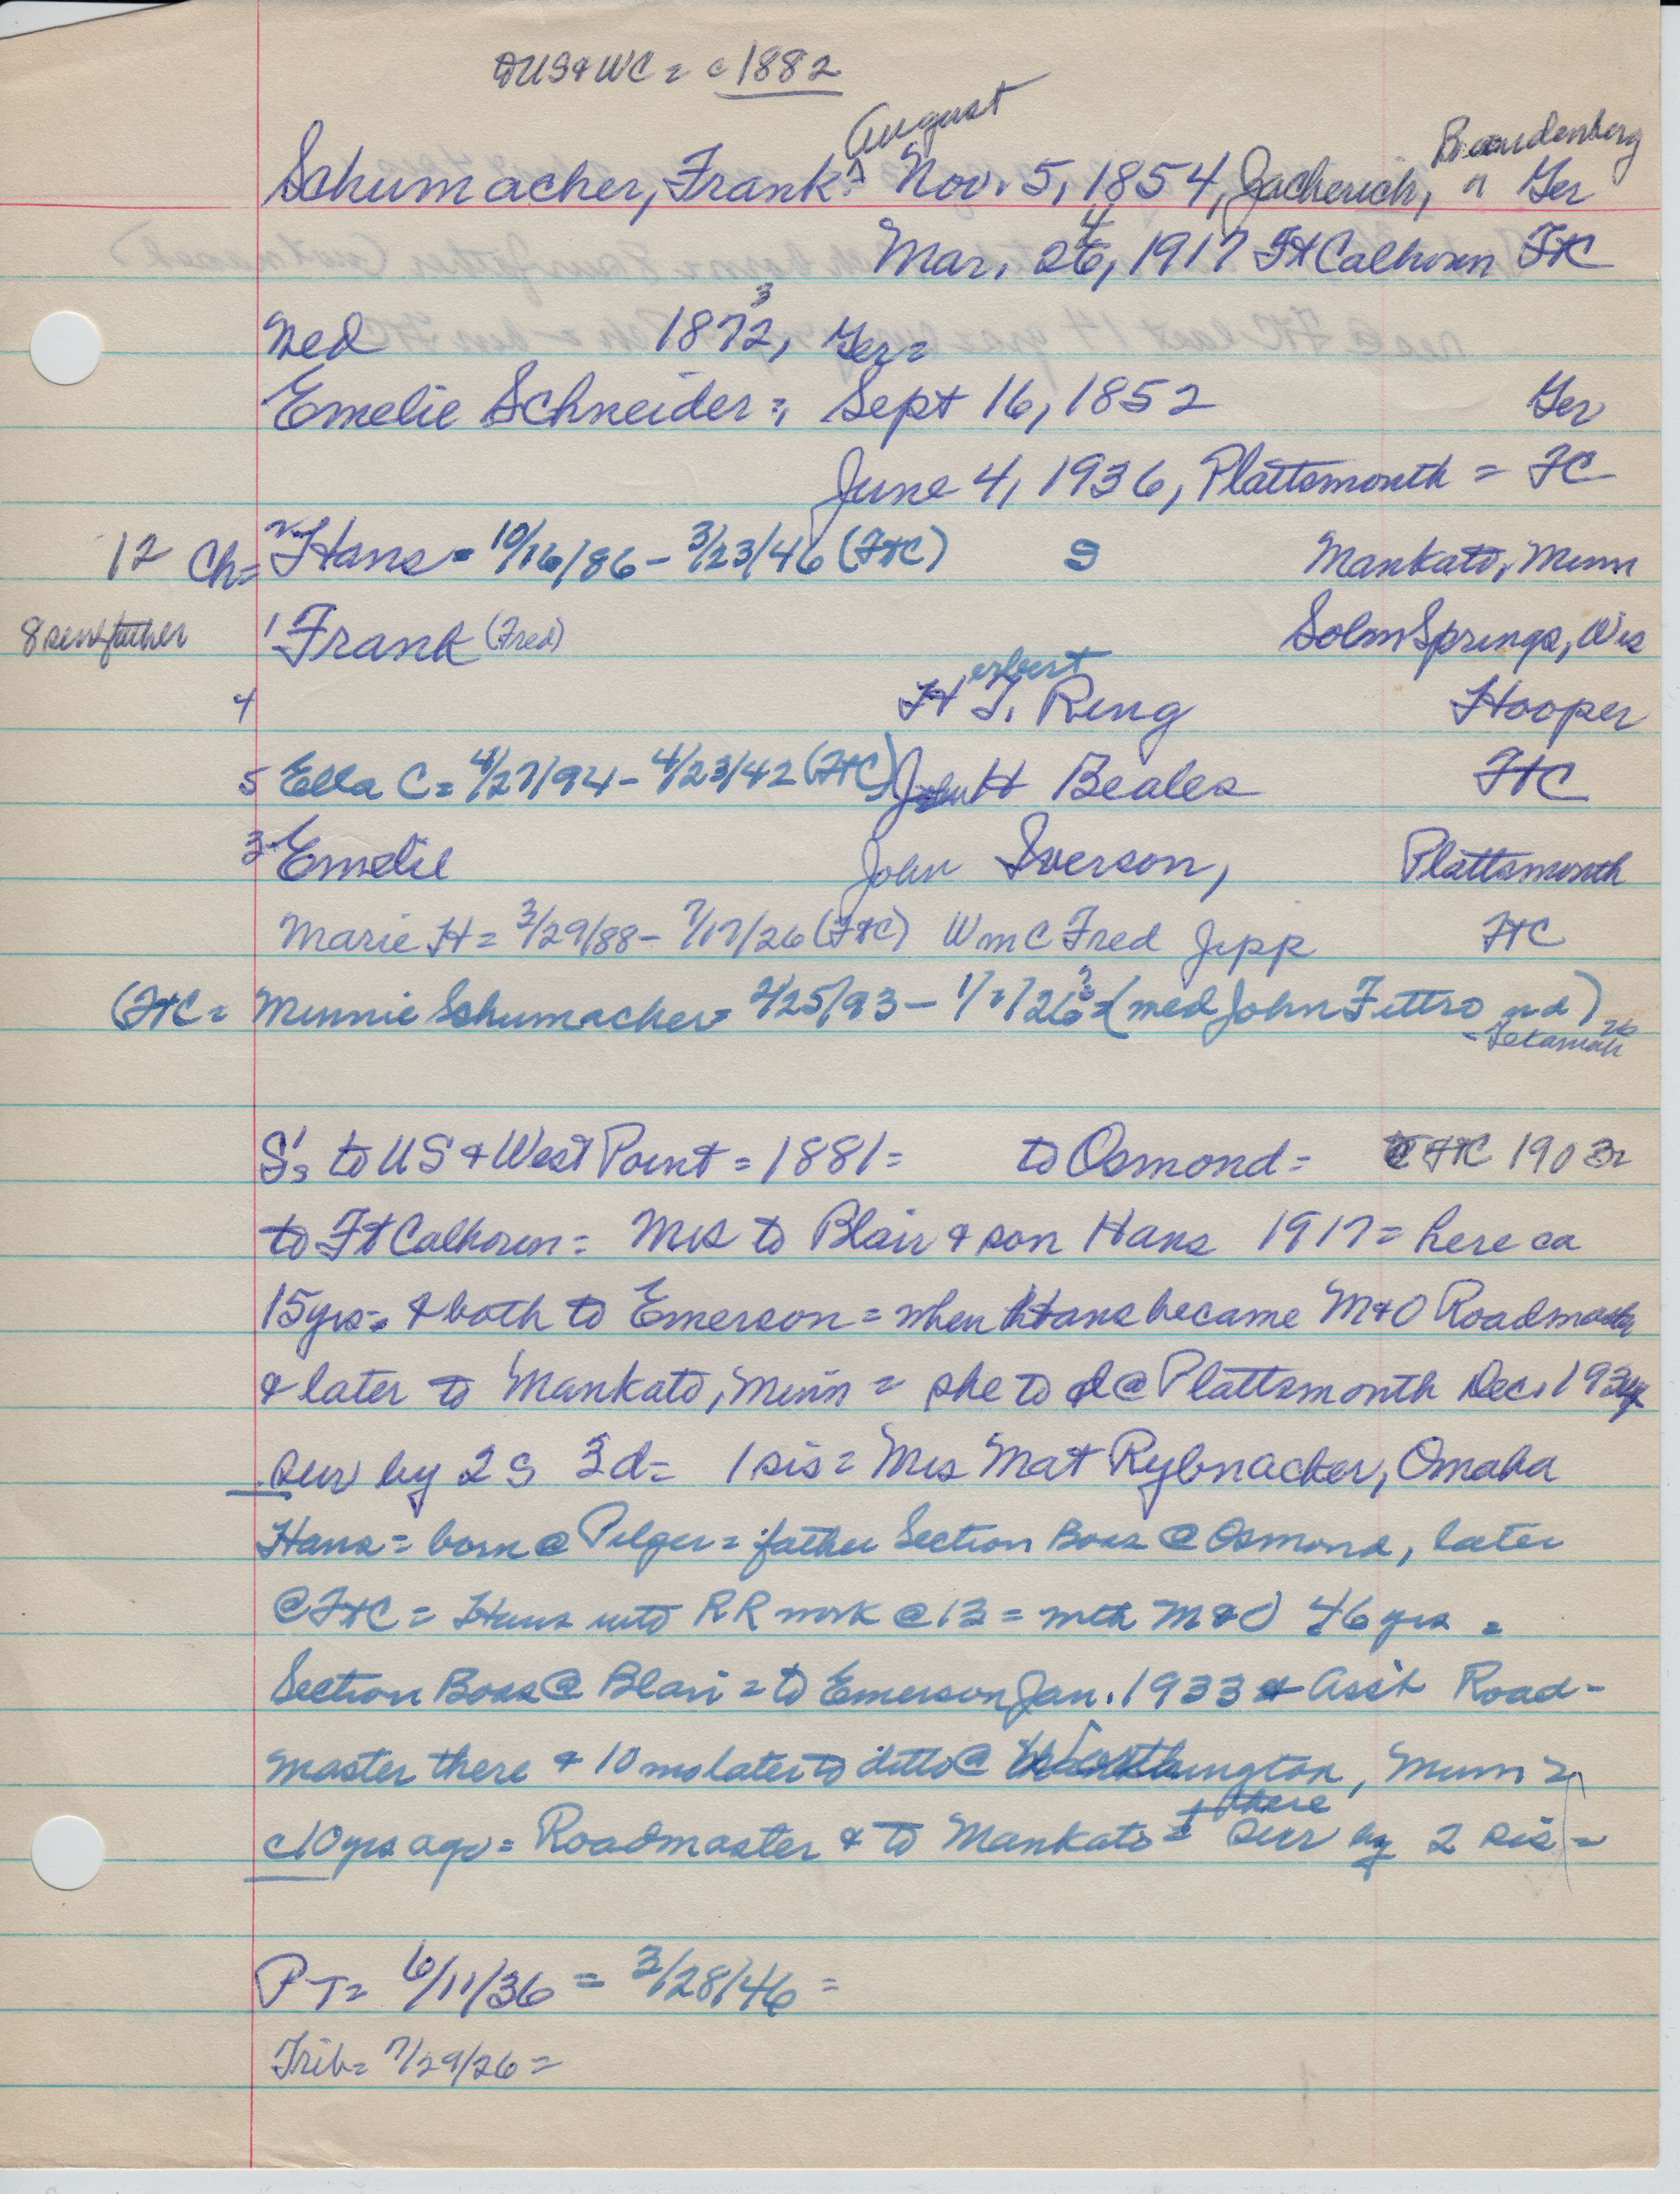 to US & WC = c 1882
August
Brandenberg
Schumacher, Frank = Nov. 5, 1854, Zacherich, Ger
4
Mar. 26, 1917 Ft Calhoun FtC
3
Med 1872, Ger =
Emelie Schneider = Sept 16, 1852 Ger
June 4, 1936, Plattsmouth = FC
12 Ch = 2 Hans = 10/16/86 - 3/23/46 (FtC) S Mankato, Minn
8 surv father 1 Frank (Fred) Solm Springs, Wis
erbert
4 H T. Ring Hooper
5 Ella C = 4/27/94 - 4/23/42 (FtC) John H Beales FtC
3 Emelie John Iverson, Plattsmouth
Marie H = 3/29/88 - 7/17/26 (FtC) Wm C Fred Jipp FtC
(FtC = Minnie Schumacher = 2/25/93 - 1/7/263 = (med John Fettro nd)
- Tekamah
S's to US & West Point = 1881 = to Osmond = FtC 1903
to Ft Calhoun = Mrs to Blair & son Hans 1917 = here ca
15 yrs = & both to Emerson = when Hans became M & O Roadmaster
& later to Mankato, Minn = she to d @ Plattsmouth Dec. 1934
surv by 2 S 3 d = 1 sis = Mrs Mat Rybnacker, Omaha
Hans = born @ Pilger = father Section Boss @ Osmond, later
@ FtC = Hans into RR work @ 13 = with M & O 46 yrs =
Section Boss @ Blair = to Emerson Jan. 1933 & Ass't Road-
master there & 10 mo later to ditto @ Worthington, Minn =
there
c 10 yrs ago = Roadmaster & to Mankato = + surv by 2 sis =
PT = 6/11/36 = 3/28/46 =
Trib = 7/29/26 =